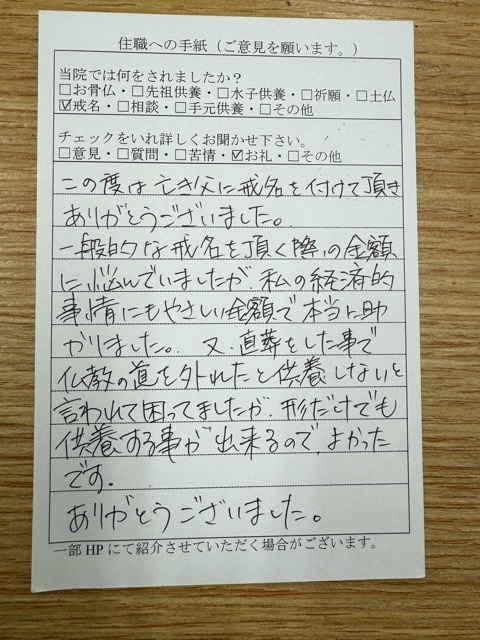 住職への手紙（ご意見を願います。）
当院では何をされましたか？
□お骨仏・□先祖供養・□水子供養・□祈願・□土仏
☑戒名・□相談・□手元供養・□その他
チェックをいれ詳しくお聞かせ下さい。
□意見・□質問・□苦情・☑お礼・□その他
この度は亡き父に戒名を付けて頂き
ありがとうございました。
一般的な戒名を頂く際の金額
に悩んでいましたが、私の経済的
事情にもやさしい金額で本当に助
かりました。又、直葬をした事で
仏教の道を外れたと供養しないと
言われて困ってましたが、形だけでも
供養する事が出来るので、よかった
です。
ありがとうございました。
一部HPにて紹介させていただく場合がございます。